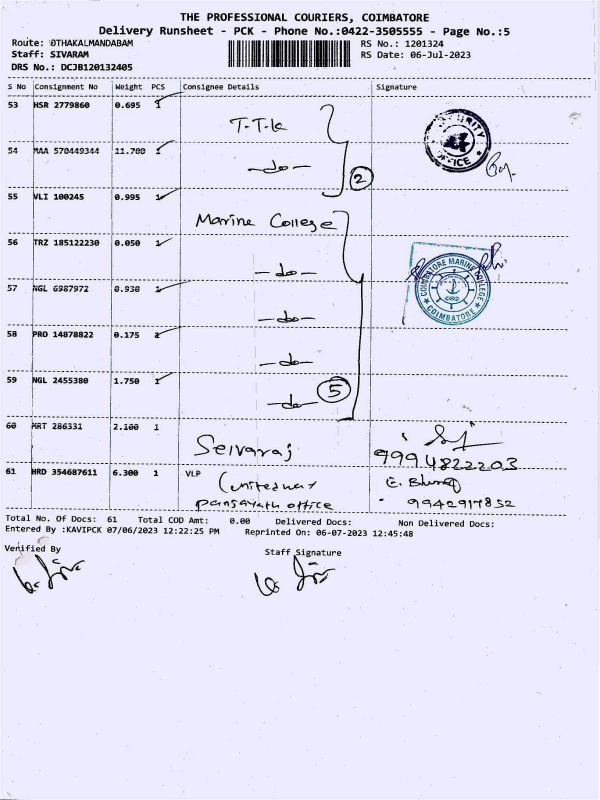 THE PROFESSIONAL COURIERS, COIMBATORE
Delivery Runsheet - PCK - Phone No.:0422-3505555 - Page No.:5
Route: OTHAKALMANDABAM
RS No.: 1201324
Staff: SIVARAM
RS Date: 06-Jul-2023
DRS No.: DCJB120132405
S No Consignment No Weight PCS Consignee Details Signature
53 HSR 2779860 0.695 1
T-T-K
SECURITY OFFICE
54 MAA 570449344 11.700 1
-do-
2
55 VLI 100245 0.995 1
Marine College
56 TRZ 185122230 0.050 1
-do-
COIMBATORE MARINE COLLEGE
COIMBATORE
57 NGL 6987972 0.930 1
-do-
58 PRO 14878822 0.175 1
-do-
59 NGL 2455380 1.750 1
-do-
5
60 MRT 286331 2.100 1
Selvaraj
9994822203
61 HRD 354687611 6.300 1 VLP
panjayath office
9942917852
Total No. Of Docs: 61 Total COD Amt: 0.00 Delivered Docs: Non Delivered Docs:
Entered By :KAVIPCK 07/06/2023 12:22:25 PM Reprinted On: 06-07-2023 12:45:48
Verified By
Staff Signature